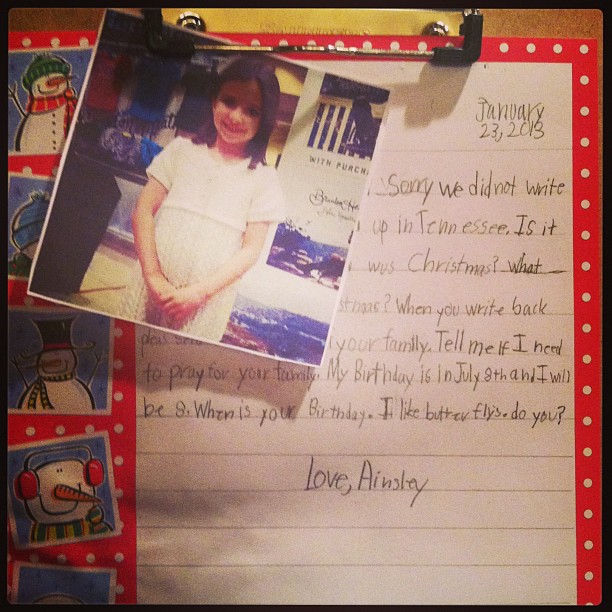 January
23, 2013
Sorry we did not write
up in Tennessee. Is it
was Christmas? What
stmas? When you write back
your family. Tell me if I need
to pray for your family. My Birthday is in July 8th and I will
be 8. When is your Birthday. I like butter flys. do you?
Love, Ainsley
WITH PURCHA